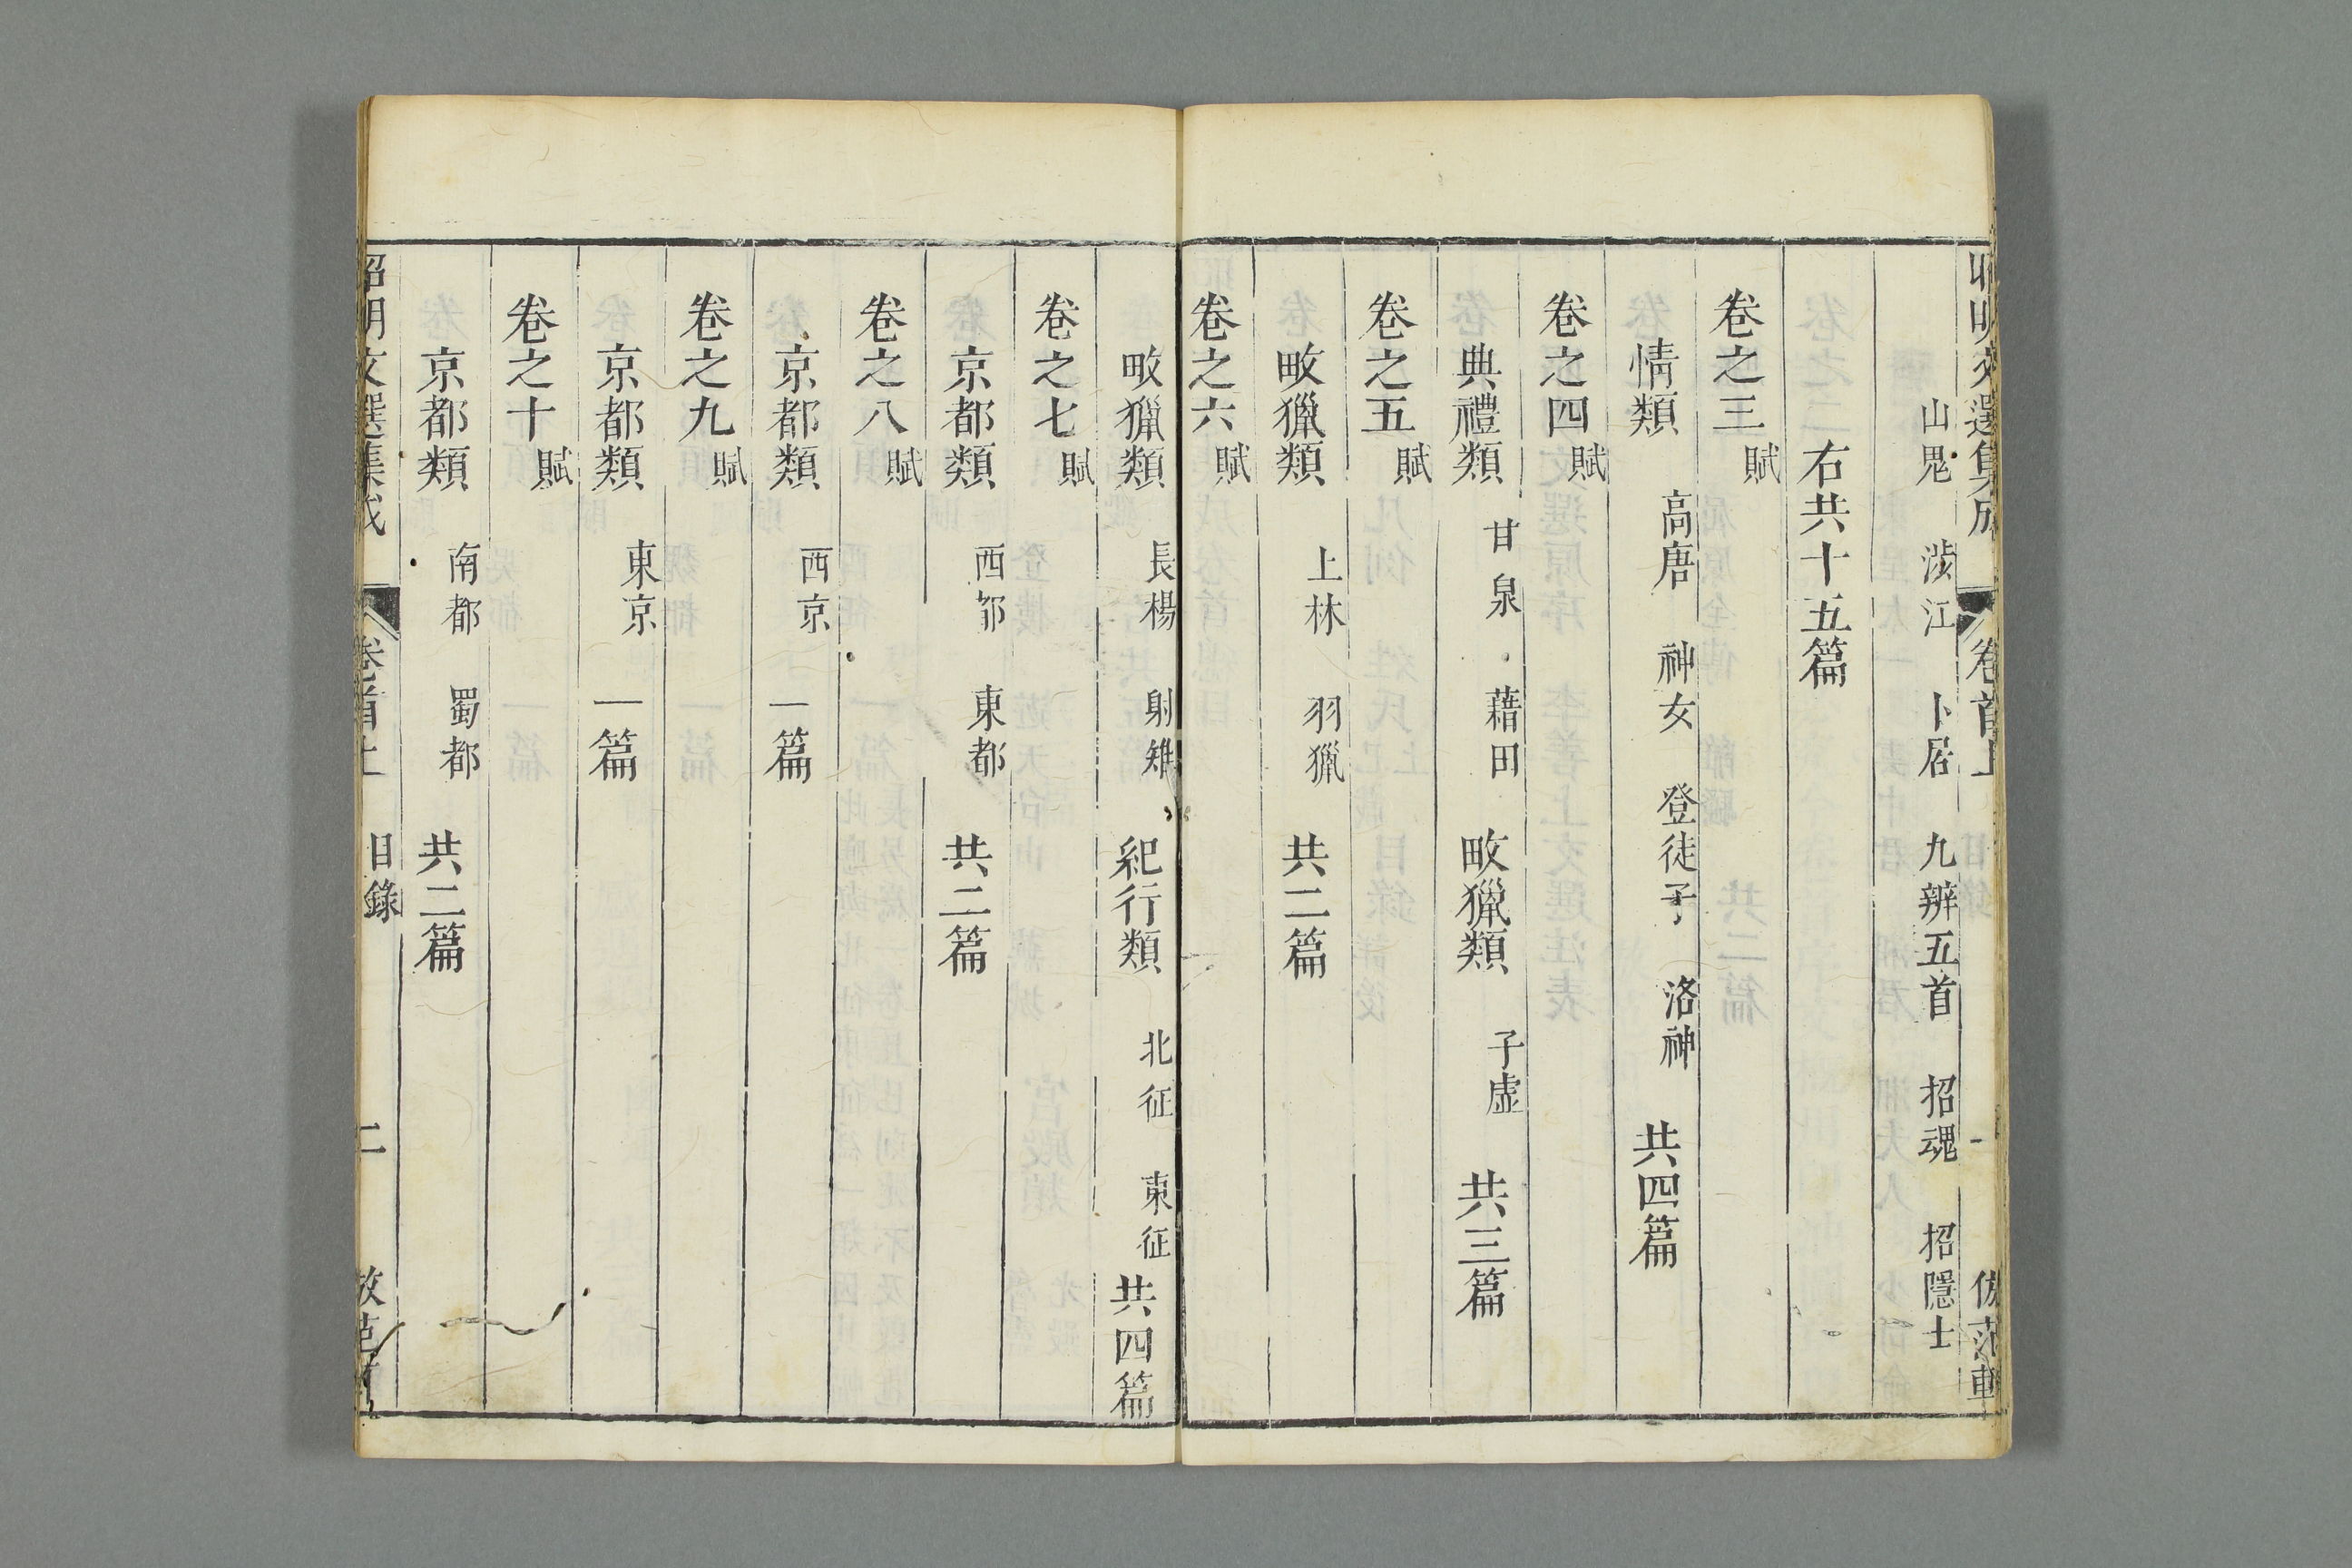 昭明文選集成 卷首上 目錄 一 倣范軒
山鬼 涉江 卜居 九辨五首 招魂 招隱士
右共十五篇
卷之三 賦
情類 高唐 神女 登徒子 洛神 共四篇
卷之四 賦
典禮類 甘泉 藉田 畋獵類 子虛 共三篇
卷之五 賦
畋獵類 上林 羽獵 共二篇
卷之六 賦
畋獵類 長楊 射雉 紀行類 北征 東征 共四篇
卷之七 賦
京都類 西都 東都 共二篇
卷之八 賦
京都類 西京 一篇
卷之九 賦
京都類 東京 一篇
卷之十 賦
京都類 南都 蜀都 共二篇
昭明文選集成 卷首上 目錄 二 倣范軒